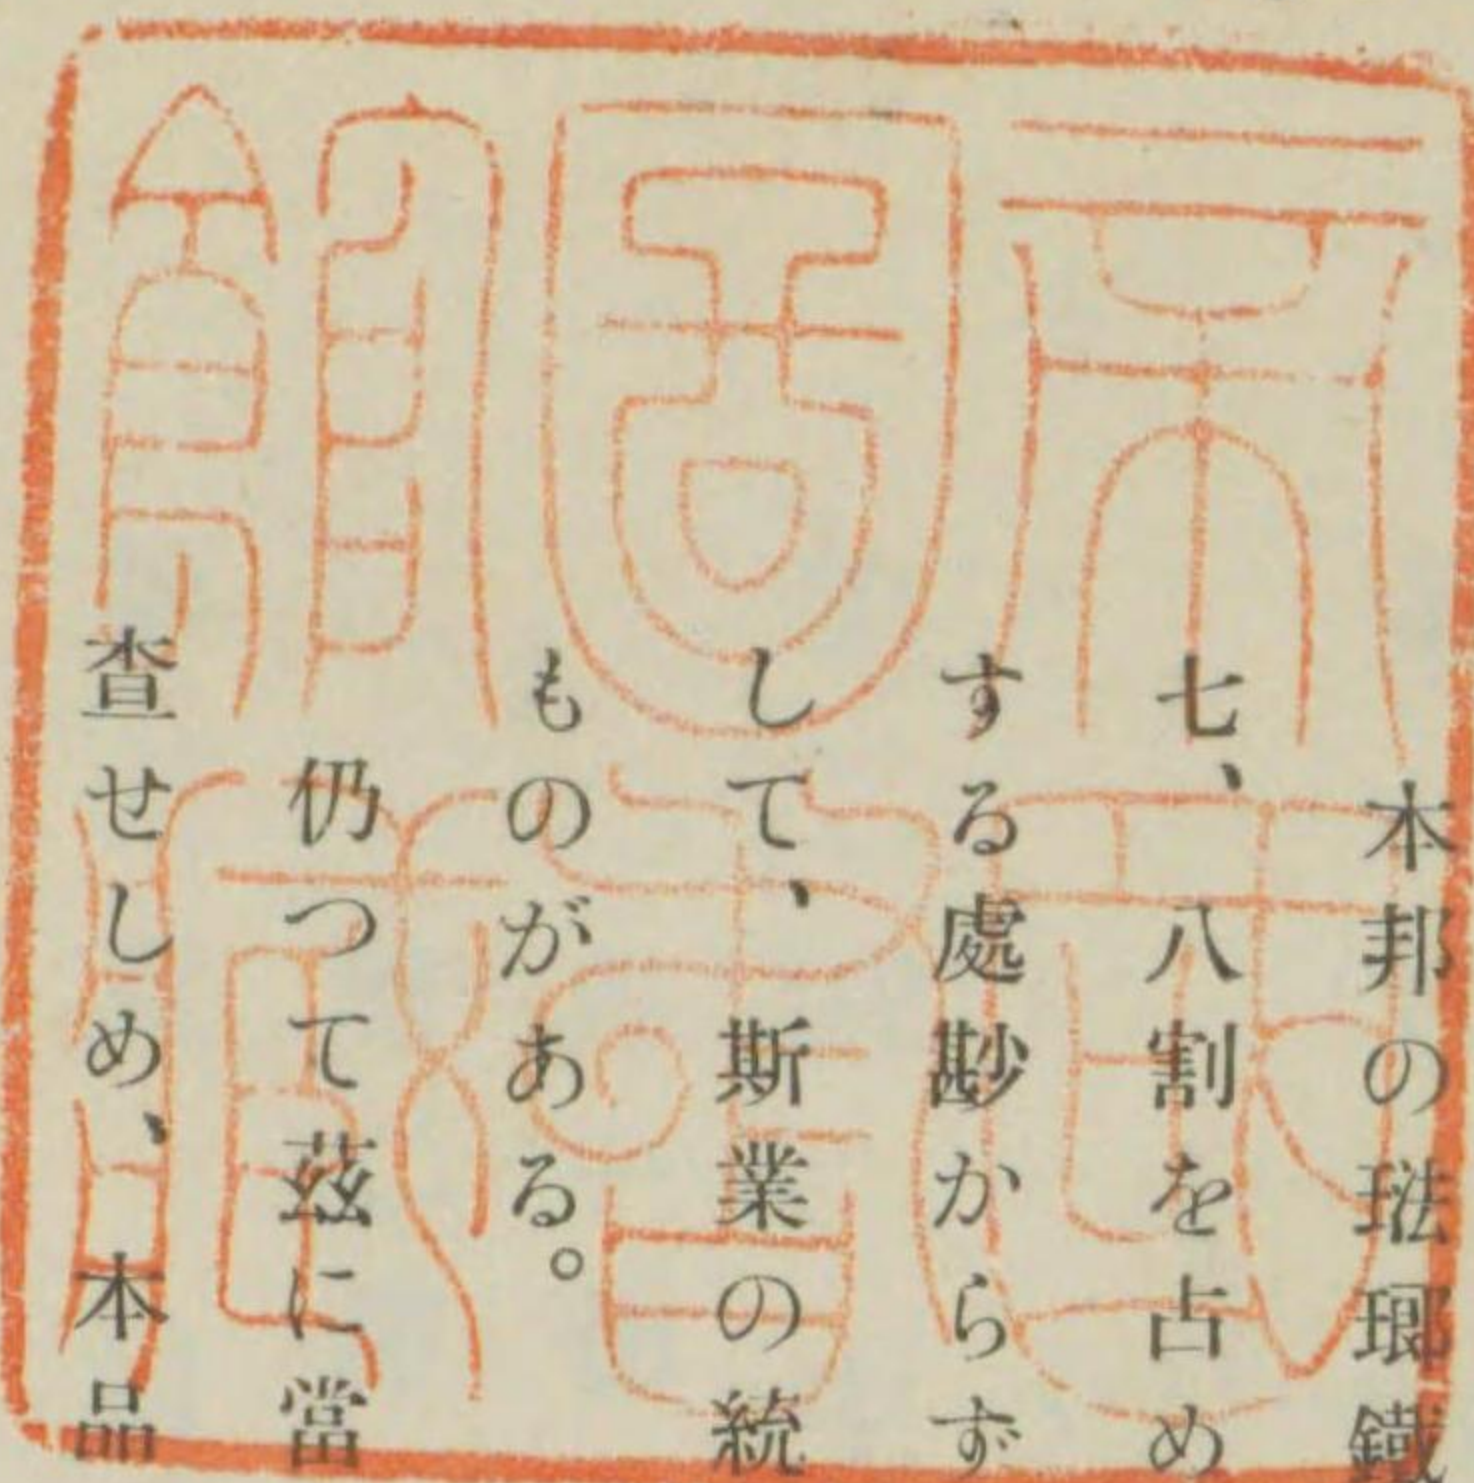 帝圖書館藏
本邦の琺瑯鐵
七、八割を占め
する處尠からず
して、斯業の統
ものがある。
仍つて茲に當
査せしめ、本品